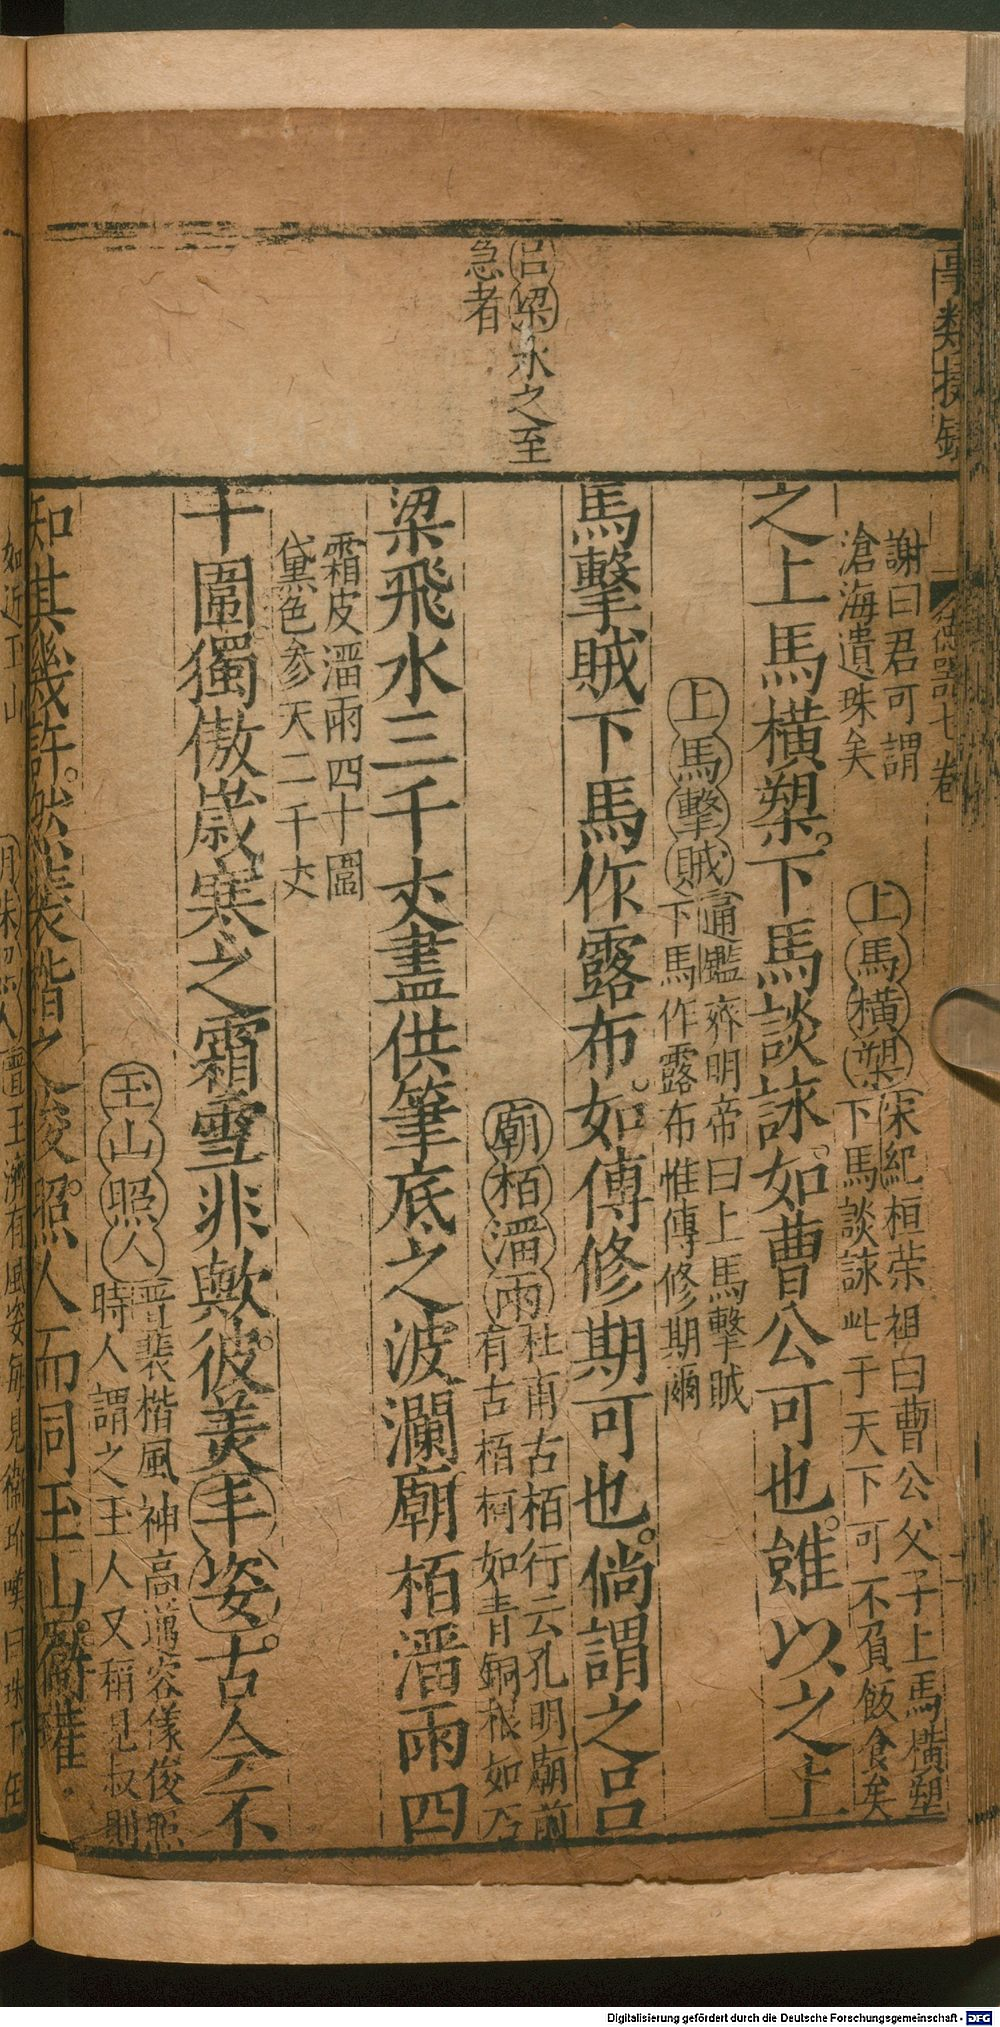 事類捷錄
德器七卷
呂梁水之至
急者
謝曰君可謂
滄海遺珠矣
上馬橫槊 宋紀桓荣祖曰曹公父子上馬橫槊
下馬談詠此于天下可不負飯食矣
之上馬橫槊。下馬談詠。如曹公可也。雖以之上
上馬擊賊 通鑑齊明帝曰上馬擊賊
下馬作露布惟傅修期爾
馬擊賊下馬作露布。如傅修期可也。倘謂之呂
廟栢溜雨 杜甫古栢行云孔明廟前
有古栢柯如青銅根如石
梁飛水三千丈盡供筆底之波瀾廟栢溜雨四
霜皮溜雨四十圍
黛色參天二千丈
十圍獨傲歲寒之霜雪非歟。彼美丰姿。古人不
玉山照人 晉裴楷風神高邁容儀俊照
時人謂之玉人又稱見叔則
知其幾許。然裴楷之俊。照人而同玉山。衛玠
如近玉山
晉王濟有風姿每見衛玠嘆曰珠
Digitalisierung gefördert durch die Deutsche Forschungsgemeinschaft - DFG